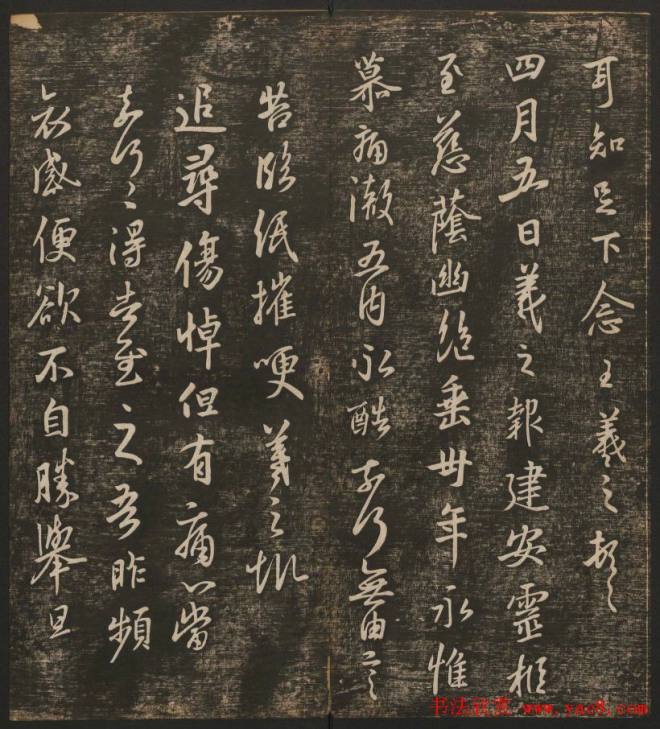 耳知足下念王羲之頓首
四月五日羲之報建安靈柩
至慈蔭幽絕垂卅年永惟
慕痛徹五內永酷奈何無由言
苦臨紙摧哽羲之報
追尋傷悼但有痛心當
奈何奈何得告慰之吾昨頻
哀感便欲不自勝舉旦
书法欣赏 www.yac8.com